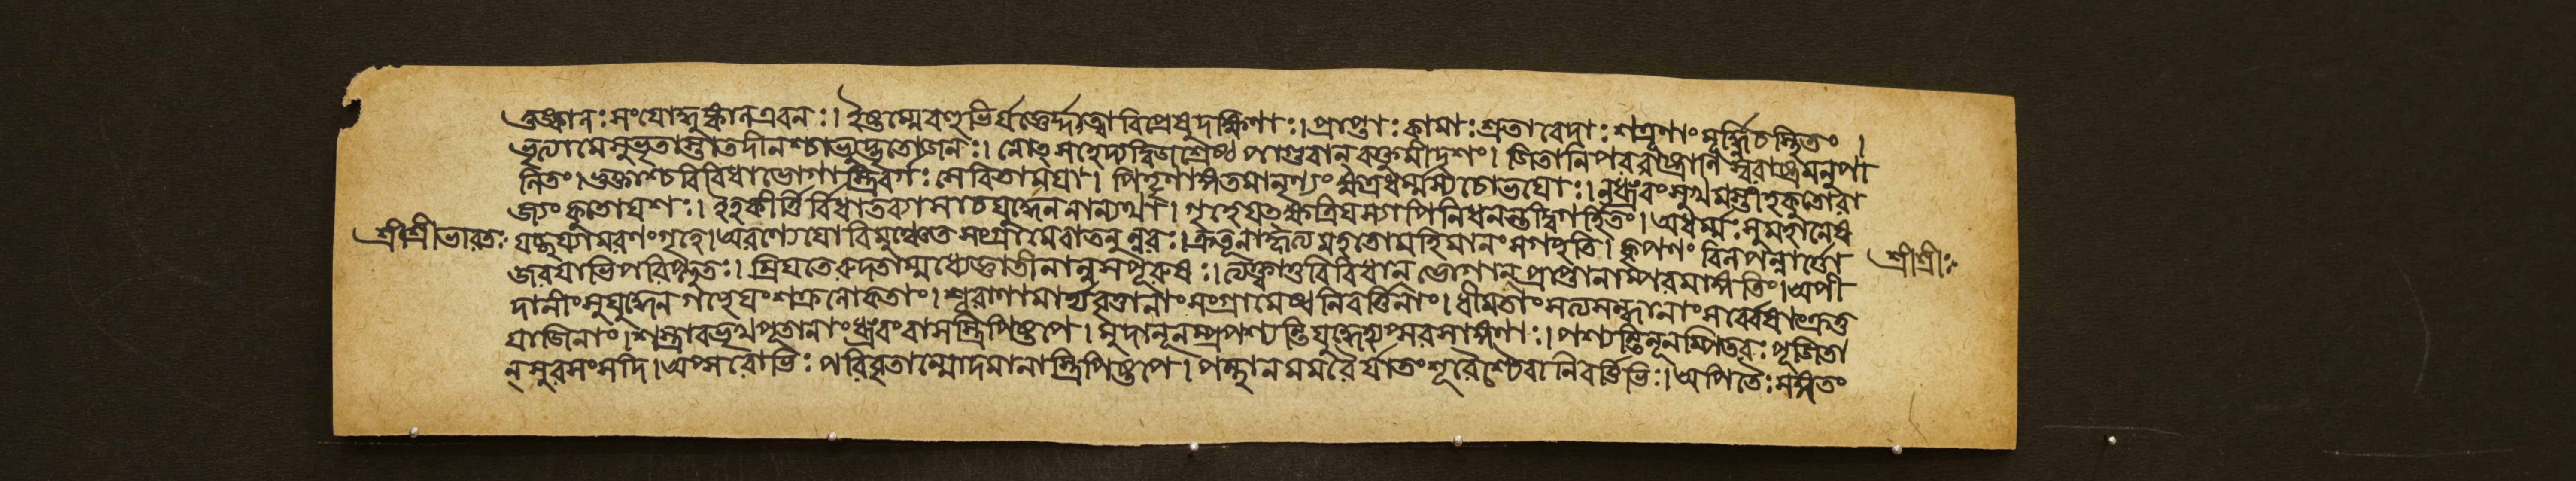 ক্লীবায়িতুং কালঃ সংযোদ্ধুঙ্কাল এবনঃ। ইষ্টম্মেবহুভির্যজ্ঞৈর্দ্দত্তাবিপ্রেষুদক্ষিণাঃ। প্রাপ্তাঃ কামাঃ শ্রুতাবেদাঃ শত্রূণাং মূর্দ্ধ্নিচস্থিতং।
ভৃত্যামেসুভৃতাস্তাতদীনশ্চাভ্যুদ্ধৃতোজনঃ। নোৎসহেদ্যদ্বিজশ্রেষ্ঠ পাণ্ডবান্ বক্তুমীদৃশং। জিতানিপররাষ্ট্রানি স্বরাষ্ট্রমনুপা
লিতং। ভুক্তাশ্চবিবিধাভোগাস্ত্রিবর্গঃ সেবিতোময়া। পিতৄণাঙ্গতমানৃণ্যং ক্ষত্রধর্ম্মস্যচোভয়োঃ। নধ্রুবংসুখমস্তীহকুতোরা
জ্যং কুতোযশঃ। ইহকীর্ত্তির্বিধাতব্যাসাচযুদ্ধেননান্যথা। গৃহেযৎক্ষত্রিয়স্যাপিনিধনন্তদ্বিগর্হিতং। অধর্ম্মঃ সুমহানেষ
যচ্ছয্যামরণংগৃহে। অরণ্যেযোবিমুঞ্চেতসংগ্রামেবাতনুন্নরঃ। ক্রতূনাহৃত্যমহতোমহিমানংসগচ্ছতি। কৃপণং বিলপন্নার্ত্তো
শ্রীশ্রীভারতঃ
জরয়াভিপরিপ্লুতঃ। ম্রিয়তেরুদতাম্মধ্যেজ্ঞাতীনান্নসপূরুষঃ। ত্যক্ত্বাতুবিবিধান্ ভোগান্ প্রাপ্তানাম্পরমাঙ্গতিং। অপী
শ্রীশ্রীঃ
দানীংসুযুদ্ধেনগচ্ছেয়ংশক্রলোকতাং। শূরাণামার্য্যবৃত্তানাংসংগ্রামেষ্বনিবর্ত্তিনাং। ধীমতাংসত্যসন্ধানাংসর্ব্বেষাংক্রতু
যাজিনাং। শস্ত্রাবভৃথপূতানাংধ্রুবংবাসস্ত্রিপিষ্টপে। মুদানূনম্প্রপশ্যন্তিযুদ্ধেহ্যপ্সরসাঙ্গণাঃ। পশ্যন্তিনূনম্পিতরঃ পূজিতা
ন্ সুরসংসদি। অপ্সরোভিঃ পরিবৃতান্মোদমানাস্ত্রিপিষ্টপে। পন্থানমমরৈর্যাতংশূরৈশ্চৈবানিবর্ত্তিভিঃ। অপিতৈঃ সঙ্গতং